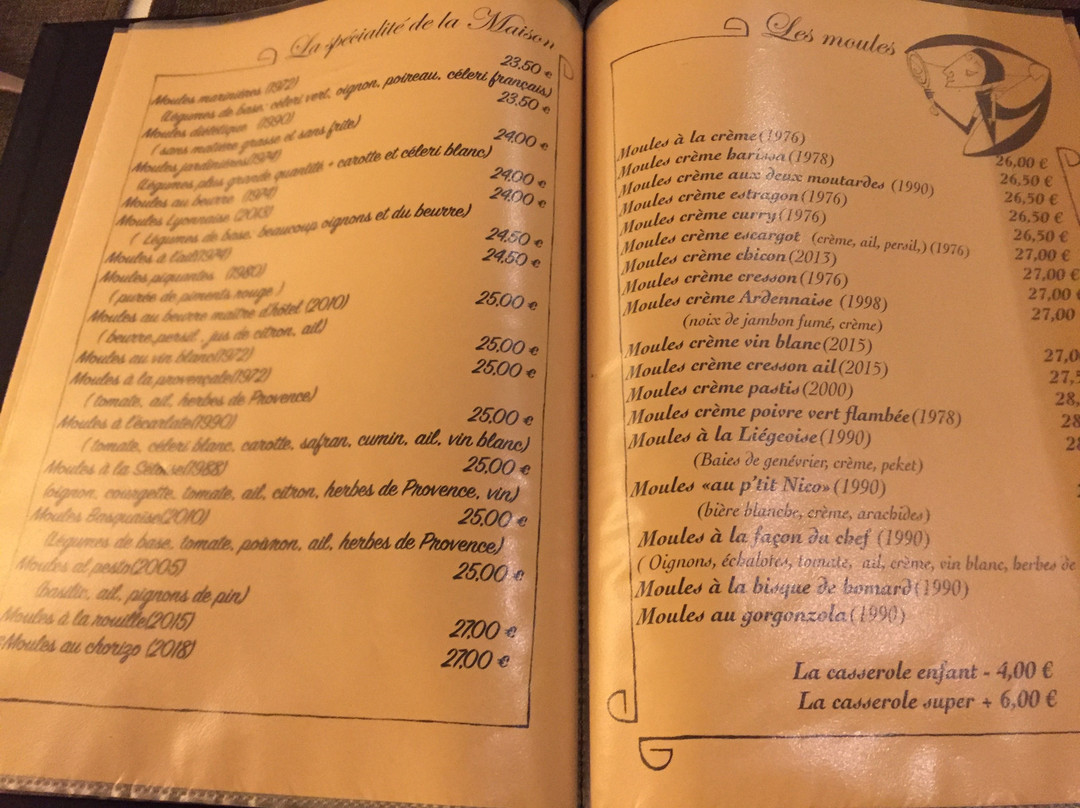 La spécialité de la Maison
Moules marinières (1972) 23.50 €
(Légumes de base: céleri vert, oignon, poireau, céleri français)
Moules diététique (1990) 23.50 €
( sans matière grasse et sans frite)
Moules jardinières(1974) 24.00 €
(Légumes plus grande quantité + carotte et céleri blanc)
Moules au beurre (1974) 24.00 €
Moules Lyonnaise (2013) 24.00 €
( Légumes de base, beaucoup oignons et du beurre)
Moules à l'ail(1974) 24.50 €
Moules piquantes (1980) 24.50 €
( purée de piments rouge )
Moules au beurre maître d'hôtel (2010) 25.00 €
( beurre,persil , jus de citron, ail)
Moules au vin blanc(1972) 25.00 €
Moules à la provençale(1972) 25.00 €
( tomate, ail, herbes de Provence)
Moules à l'écarlate(1990) 25.00 €
( tomate, céleri blanc, carotte, safran, cumin, ail, vin blanc)
Moules à la Sétoise(1988) 25.00 €
(oignon, courgette, tomate, ail, citron, herbes de Provence, vin)
Moules Basquaise(2010) 25.00 €
(Légumes de base, tomate, poivron, ail, herbes de Provence)
Moules al pesto(2005) 25.00 €
(basilic, ail, pignons de pin)
Moules à la rouille(2015) 27.00 €
Moules au chorizo (2018) 27.00 €
Les moules
Moules à la crème(1976) 26,00 €
Moules crème harissa(1978) 26,50 €
Moules crème aux deux moutardes (1990) 26,50 €
Moules crème estragon(1976) 26,50 €
Moules crème curry(1976) 26,50 €
Moules crème escargot (crème, ail, persil,) (1976) 27,00 €
Moules crème chicon(2013) 27,00 €
Moules crème cresson(1976) 27,00
Moules crème Ardennaise (1998) 27,00
(noix de jambon fumé, crème)
Moules crème vin blanc(2015) 27,0
Moules crème cresson ail(2015) 27,5
Moules crème pastis(2000) 28,
Moules crème poivre vert flambée(1978) 28
Moules à la Liégeoise(1990) 28
(Baies de genévrier, crème, peket)
Moules «au p'tit Nico» (1990)
(bière blanche, crème, arachides)
Moules à la façon du chef (1990)
( Oignons, échalotes, tomate, ail, crème, vin blanc, herbes de
Moules à la bisque de homard(1990)
Moules au gorgonzola(1990)
La casserole enfant - 4,00 €
La casserole super + 6,00 €